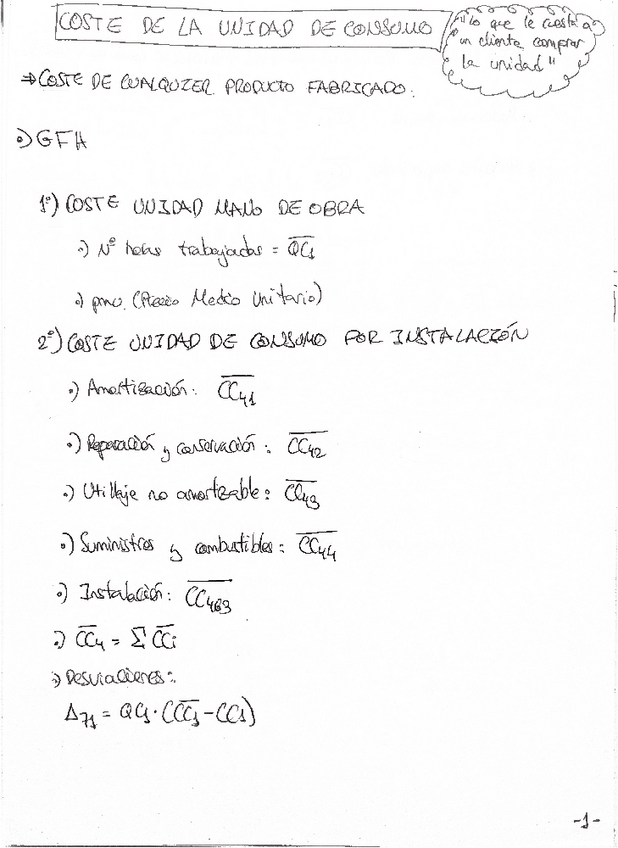 COSTE DE LA UNIDAD DE CONSUMO
"lo que le cuesta a
un cliente comprar
la unidad"
⇒ COSTE DE CUALQUIER PRODUCTO FABRICADO.
•) GFH
1º) COSTE UNIDAD MANO DE OBRA
•) Nº horas trabajadas = Q̅C̅₁
•) pmu. (Precio Medio Unitario)
2º) COSTE UNIDAD DE CONSUMO POR INSTALACIÓN
•) Amortización: C̅C̅₄₁
•) Reparación y conservación: C̅C̅₄₂
•) Utillaje no amortizable: C̅C̅₄₃
•) Suministros y combustibles: C̅C̅₄₄
•) Instalación: C̅C̅₄₆₃
•) C̅C̅₄ = Σ C̅C̅i
•) Desviaciones:
Δ₇₁ = QC₁ · (C̅C̅₁ - CC₁)
-1-